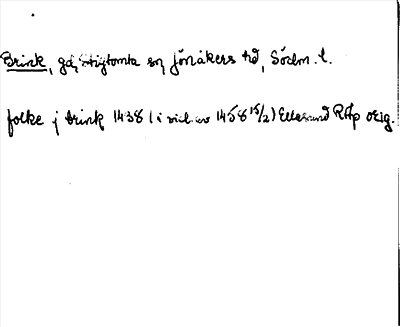 Brink, gd, Stigtomta sn, Jönåkers hd, Södm. l.
folke j brink 1438 (i vid. av 1458 15/2) Ellesund RAp orig.